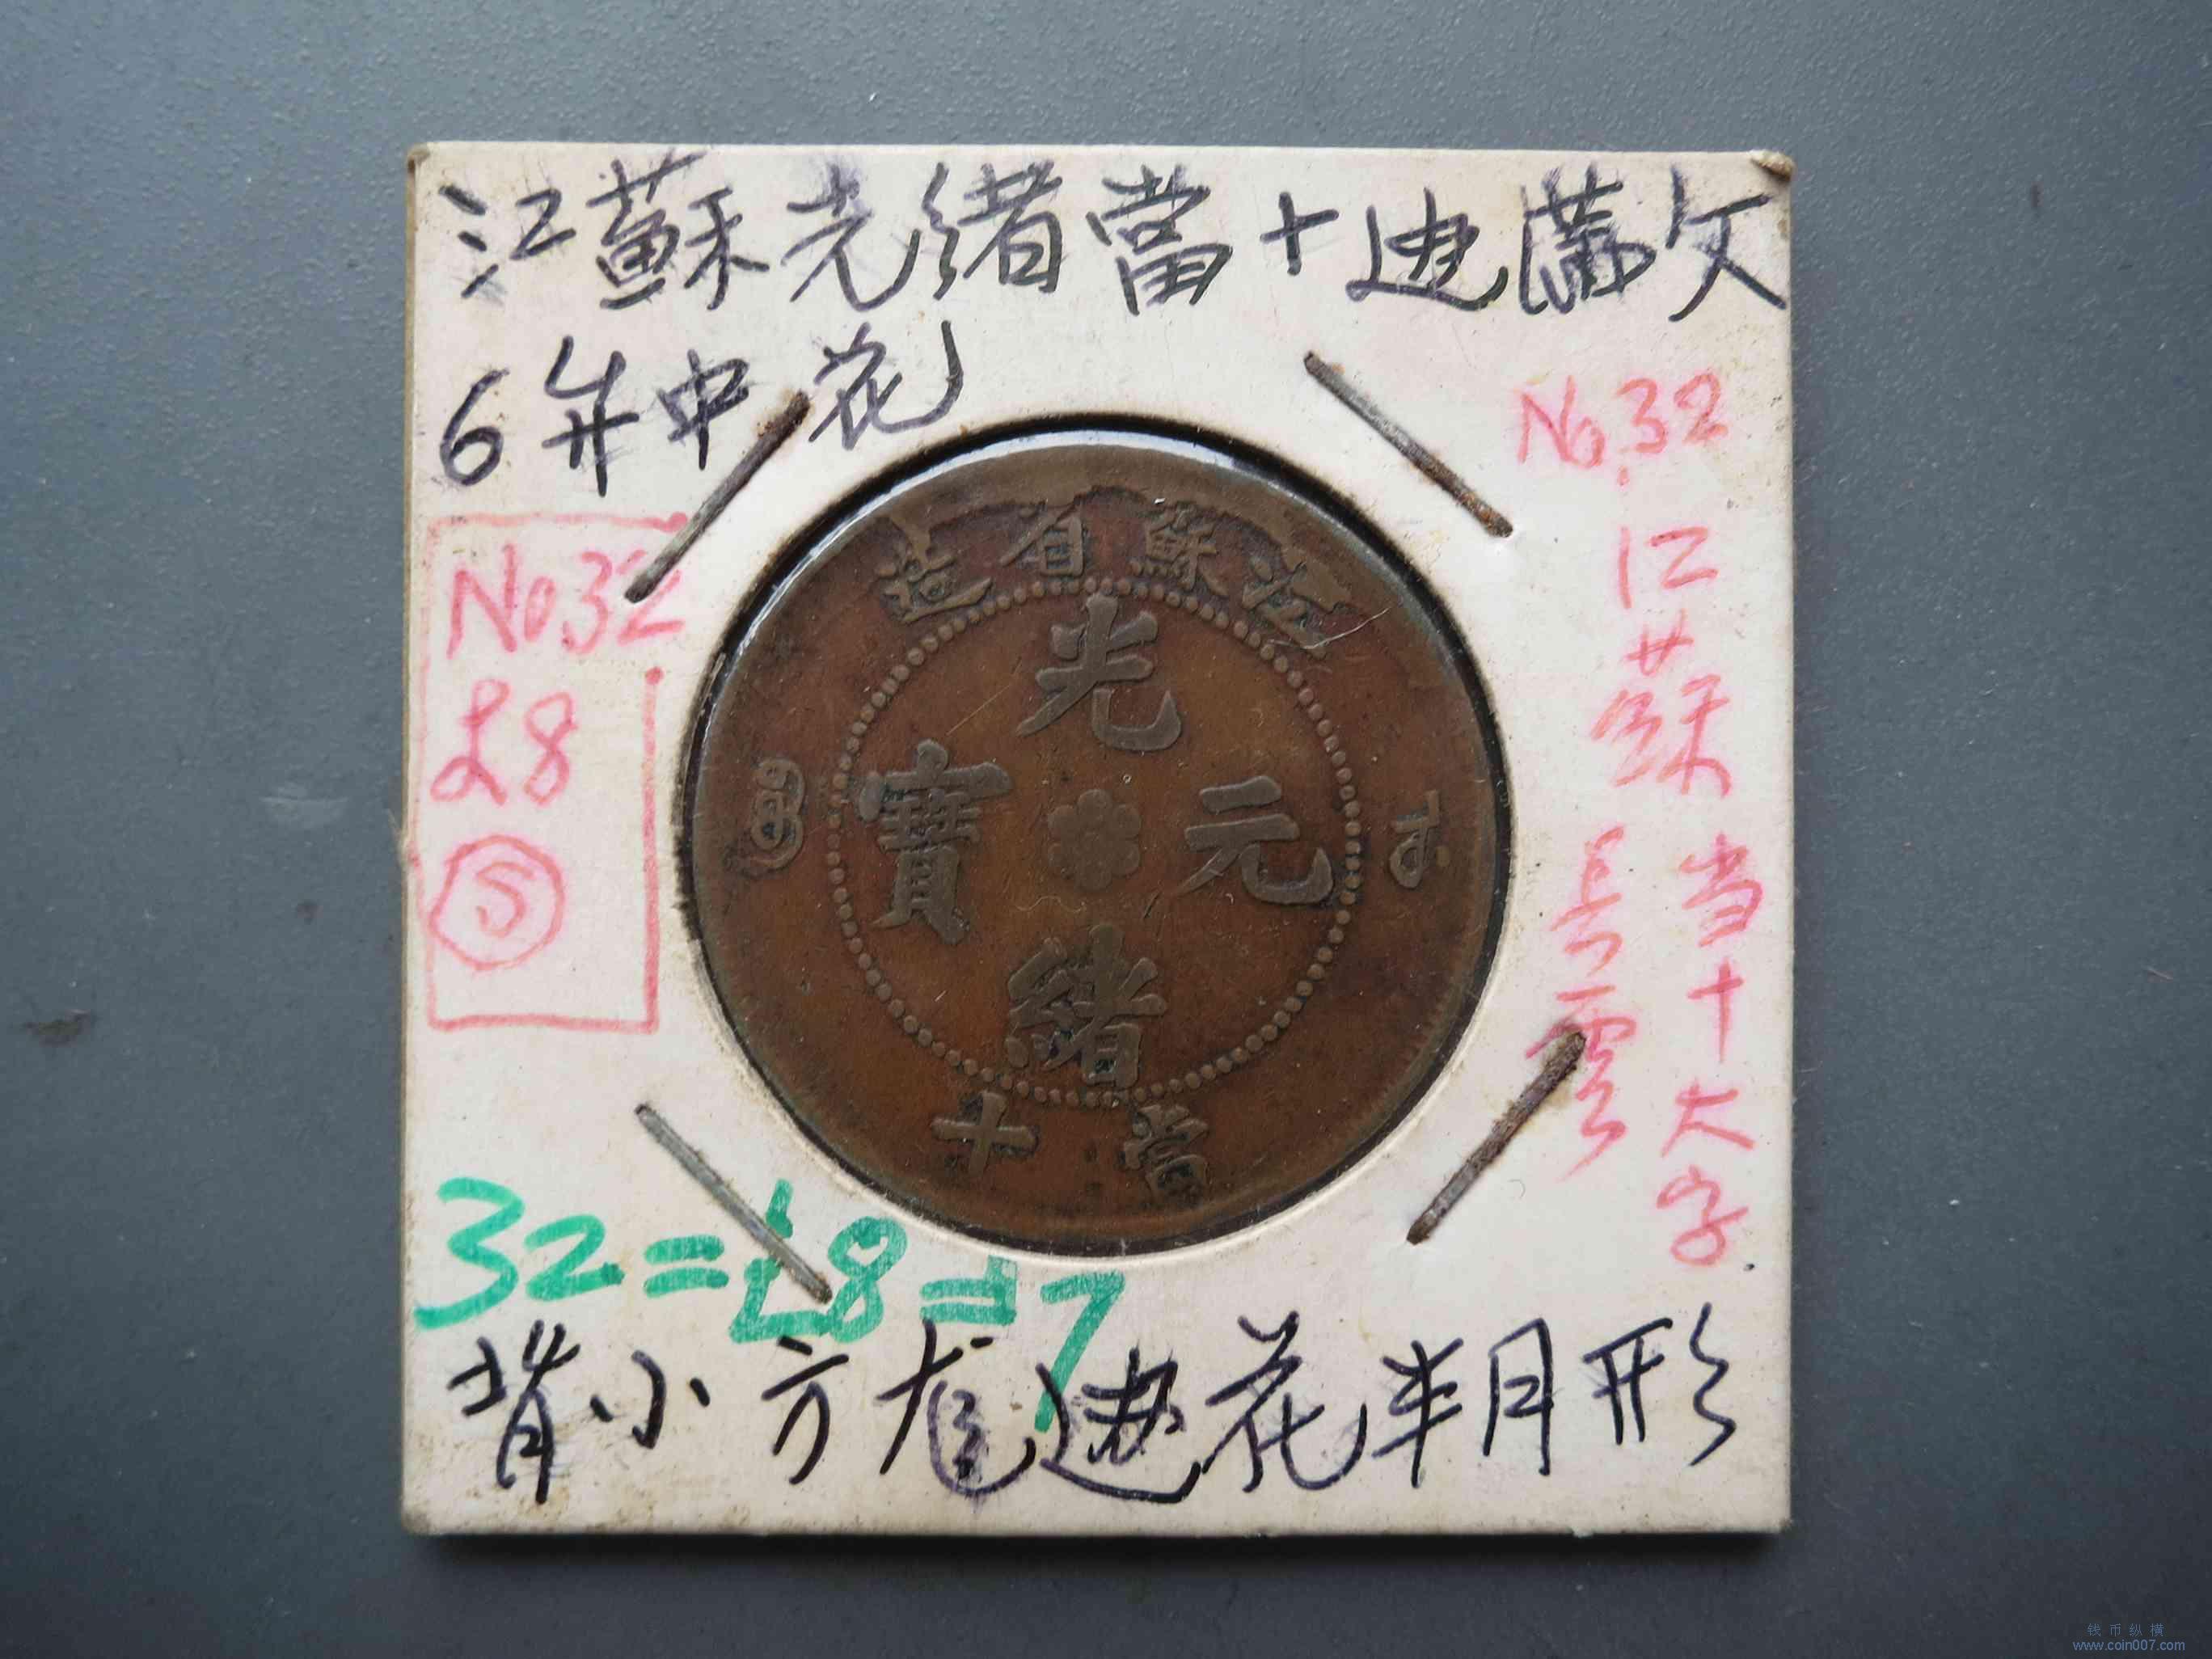 江蘇光緒當十边满文
6弁中花
No.32
江蘇当十大字
長雲
No.32
£8
Ⓢ
江蘇省造
光緒元寶
當十
32=£8=17
背小方龙边花半月形
钱币纵横
www.coin007.com